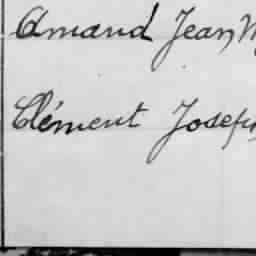 Amand Jean
Clément Joseph